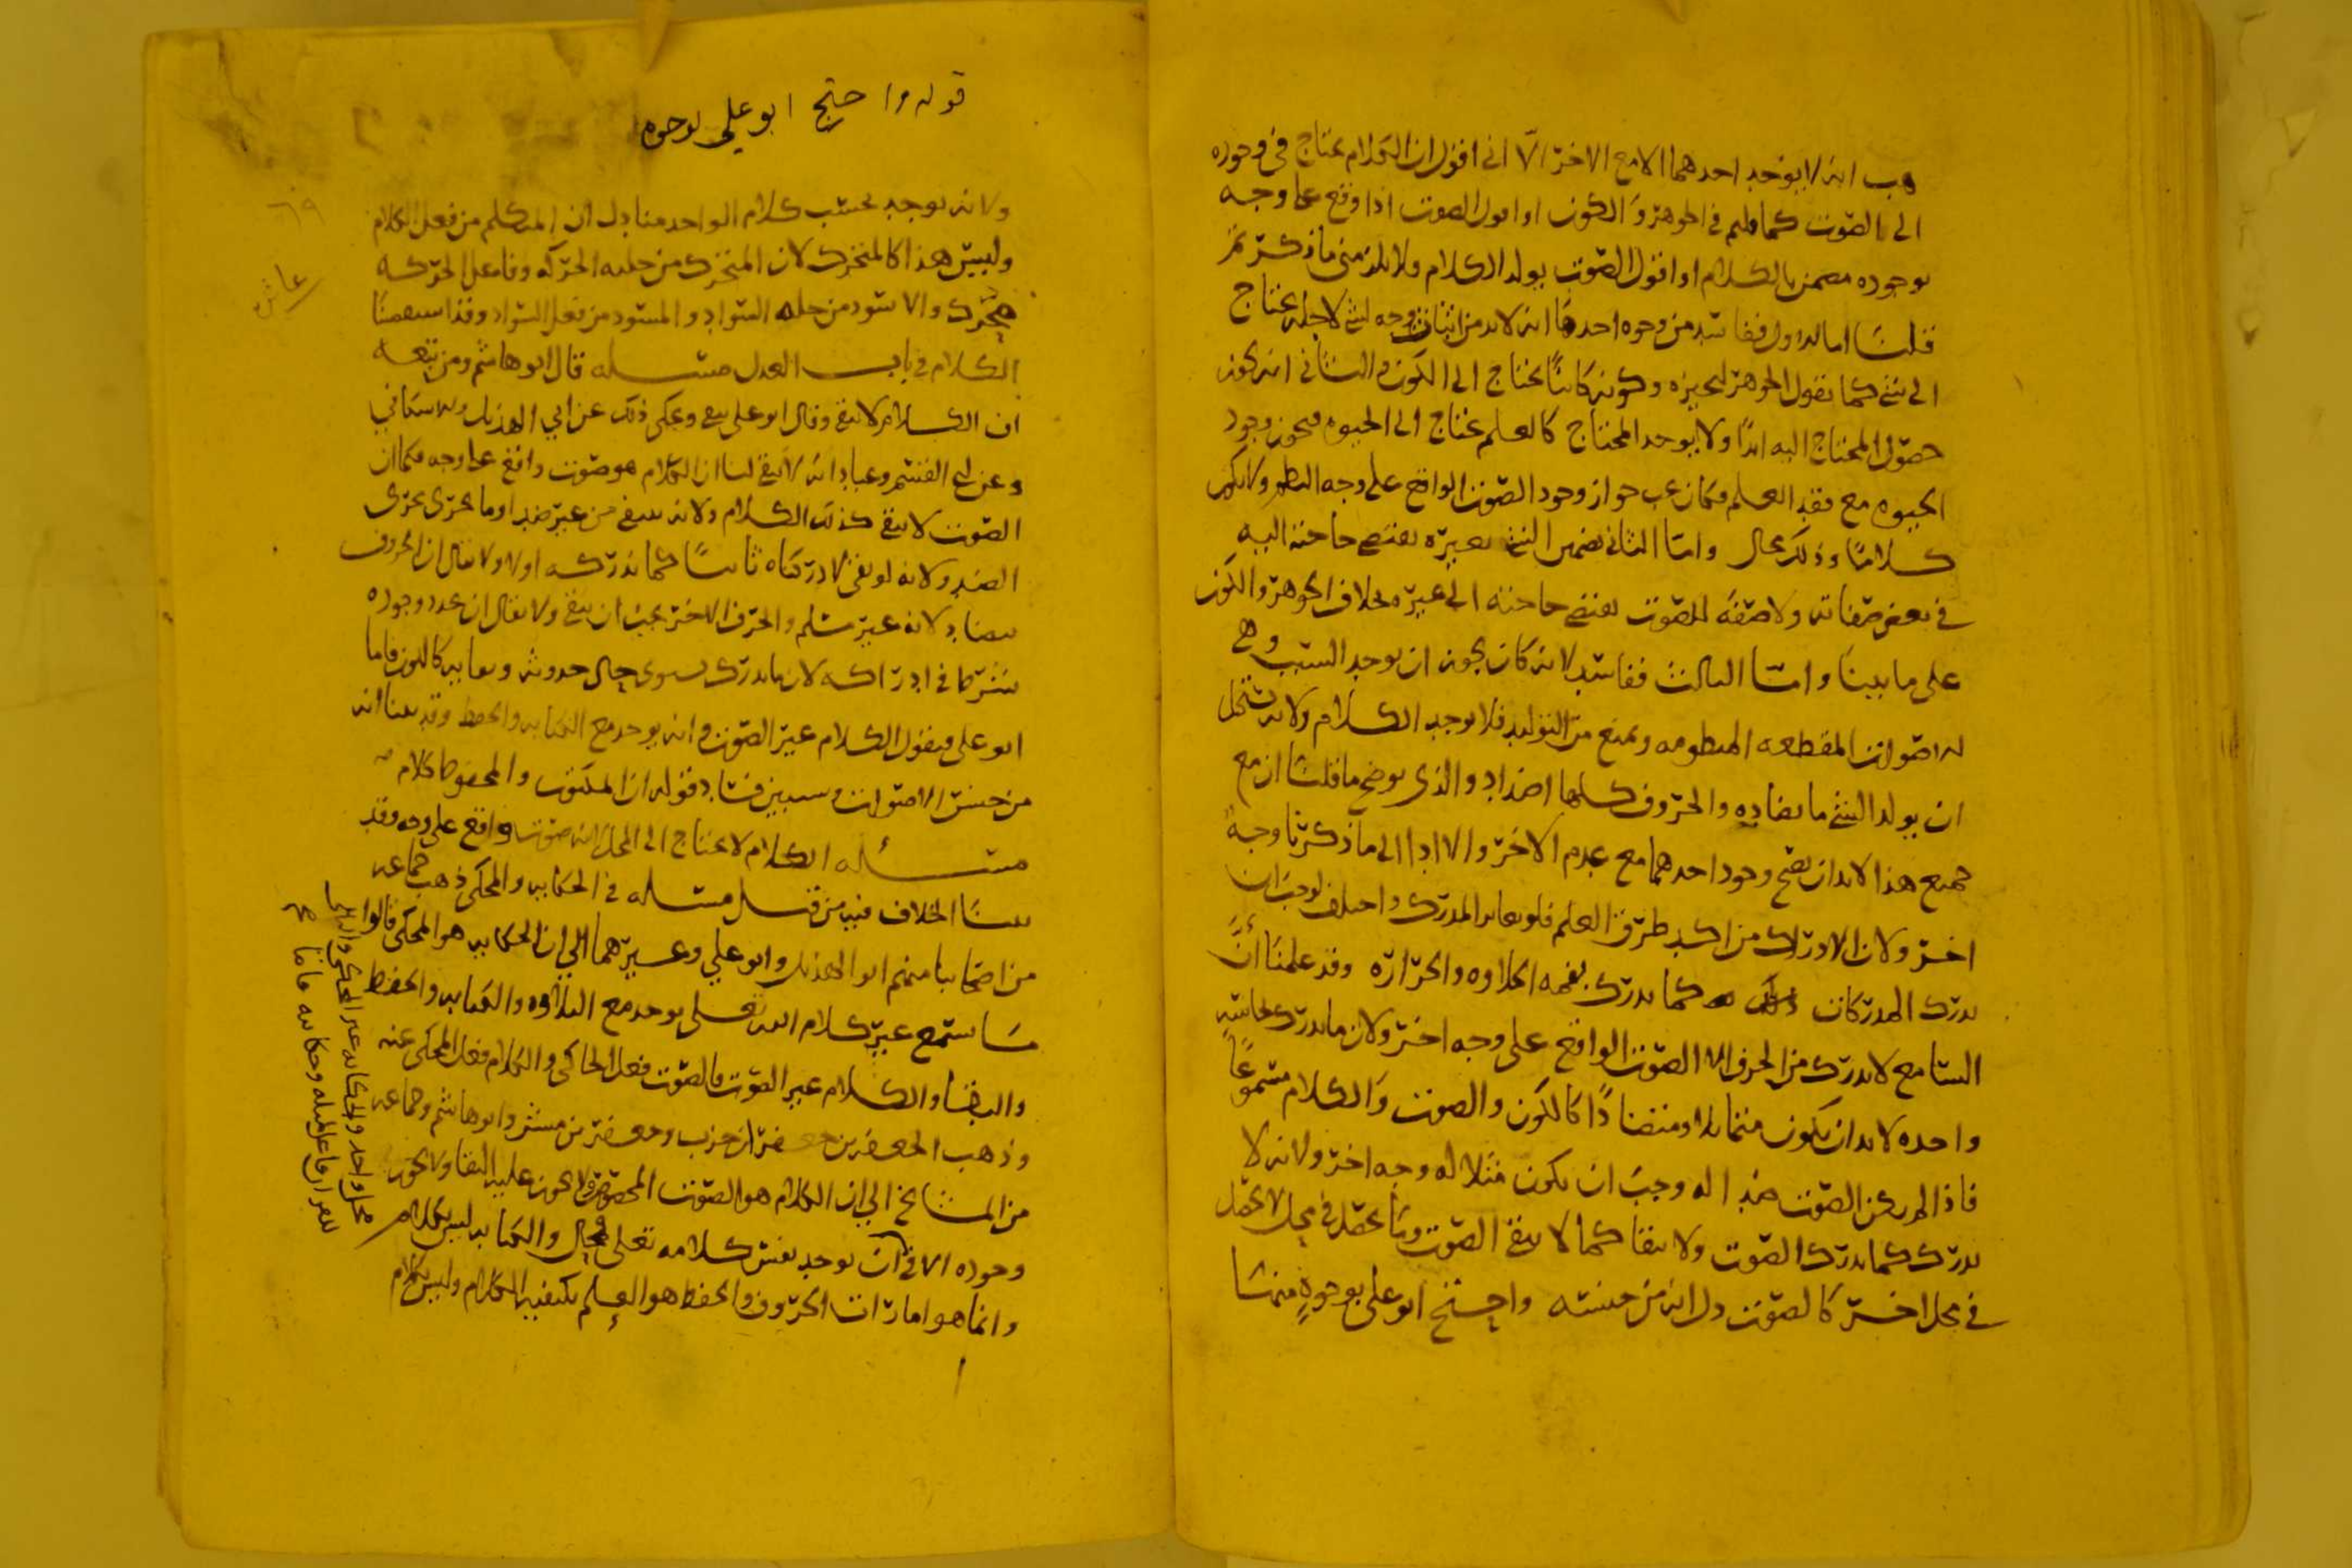 هب انه لا يوجد احدهما الا مع الاخر الا اني اقول ان الكلام يحتاج في وجوده
الى الصوت كما قلتم في الجوهر والكون او اقول الصوت اذا وقع على وجه
بوجوده مضمن بالكلام او اقول الصوت يولد الكلام ولا يلزمني ما ذكرتم
قلنا اما الاول ففاسد من وجوه احدها انه لا بد من اثبات وجه لشي لاجله يحتاج
الى شي كما نقول الجوهر لتحيزه وكونه كائنا يحتاج الى الكون والثاني انه يجوز
حصول المحتاج اليه ابدا ولا يوجد المحتاج كالعلم يحتاج الى الحيوه فيجوز وجود
الحيوه مع فقد العلم فكان يجب جواز وجود الصوت الواقع على وجه النظم ولا يكون
كلاما وذلك محال واما الثاني فتضمن الشي بغيره يقتضي حاجته اليه
في بعض صفاته ولا صفة للصوت يقتضي حاجته الى غيره بخلاف الجوهر والكون
على ما بينا واما الثالث ففاسد لانه كان يجوز ان يوجد السبب وهي
الاصوات المقطعه المنظومه ويمنع من التوليد فلا يوجد الكلام ولانه يستحيل
ان يولد الشي ما يضاده والحروف كلها اضداد والذي يوضح ما قلنا ان مع
جميع هذا لا بد ان يصح وجود احدهما مع عدم الاخر والا ادا الى ما ذكرنا وجه
اخر ولان الادراك من اكد طرق العلم فلو تغاير المدرك واختلف لوجب ان
يدرك المدركات كما يدرك بفمه الحلاوه والحراره وقد علمنا أنّ
السامع لا يدرك من الحرف الا الصوت الواقع على وجه اخر ولان ما يدرك بحاسه
واحده لا بد ان يكون متماثلا او متضادا كالكون والصوت والكلام مسموعا
فاذا لم يكن الصوت ضدا له وجب ان يكون مثلا له وجه اخر ولانه لا
يدرك كما يدرك الصوت ولا يبقا كما لا يبقى الصوت وما يحصل في محل لا يحصل
في محل اخر كالصوت دل انه من جنسه واحتج ابو علي بوجوه منها
قوله واحتج ابو علي بوجوه
ولانه يوجد بحسب كلام الواحد منا دل ان المتكلم من فعل الكلام
وليس هذا كالمتحرك لان المتحرك من حله الحركه وفاعل الحركه
محرك والاسود من حله السواد والمسود من فعل السواد وقد استقصينا
الكلام في باب العدل مسئله قال ابو هاشم ومن تبعه
ان الكلام لا يبقى وقال ابو علي يبقى ويحكى ذلك عن ابي الهذيل والاسكافي
وعن ابي القسم وعباد انه لا يبقى لنا ان الكلام هو صوت واقع على وجه فكما ان
الصوت لا يبقى كذلك الكلام ولانه ينتفي من غير ضد او ما يجري مجرى
الضد ولانه لو بقي لادركناه ثانيا كما ندركه اولا ولا يقال ان الحروف
تتضاد لانه غير مسلم والحرف الاخر يجب ان يبقى ولا يقال ان تجدد وجوده
شرط في ادراكه لان ما يدرك يستوي حال حدوثه وبقائه كاللون فاما
ابو علي فيقول الكلام غير الصوت وانه يوجد مع الكتابه والحفظ وقد بينا انه
من جنس الاصوات وسنبين فساد قوله ان المكتوب والمحفوظ كلام
مسئله الكلام لا يحتاج الى المحل لانه صوت واقع على وجه وقد
بينا الخلاف فيه من قبل مسئله في الحكايه والمحكي ذهب جماعه
من اصحابنا منهم ابو الهذيل وابو علي وغيرهما الى ان الحكايه هو المحكي قالوا
ما يستمع عين كلام الله تعلى يوجد مع التلاوه والكتابه والحفظ
والبقا والكلام غير الصوت فالصوت فعل الحاكي والكلام فعل المحكي عنه
وذهب الجعفرين جعفر ابن حرب وجعفر بن مبشر وابو هاشم وجماعه
من المشايخ الى ان الكلام هو الصوت المخصوص لا يجوز عليه البقا ولا يجوز
وجوده الا في آن يوجد نفس كلامه تعلى محال والكتابه ليس بكلام
وانما هو امارات الحروف والحفظ هو العلم بكيفيه الكلام وليس بكلام